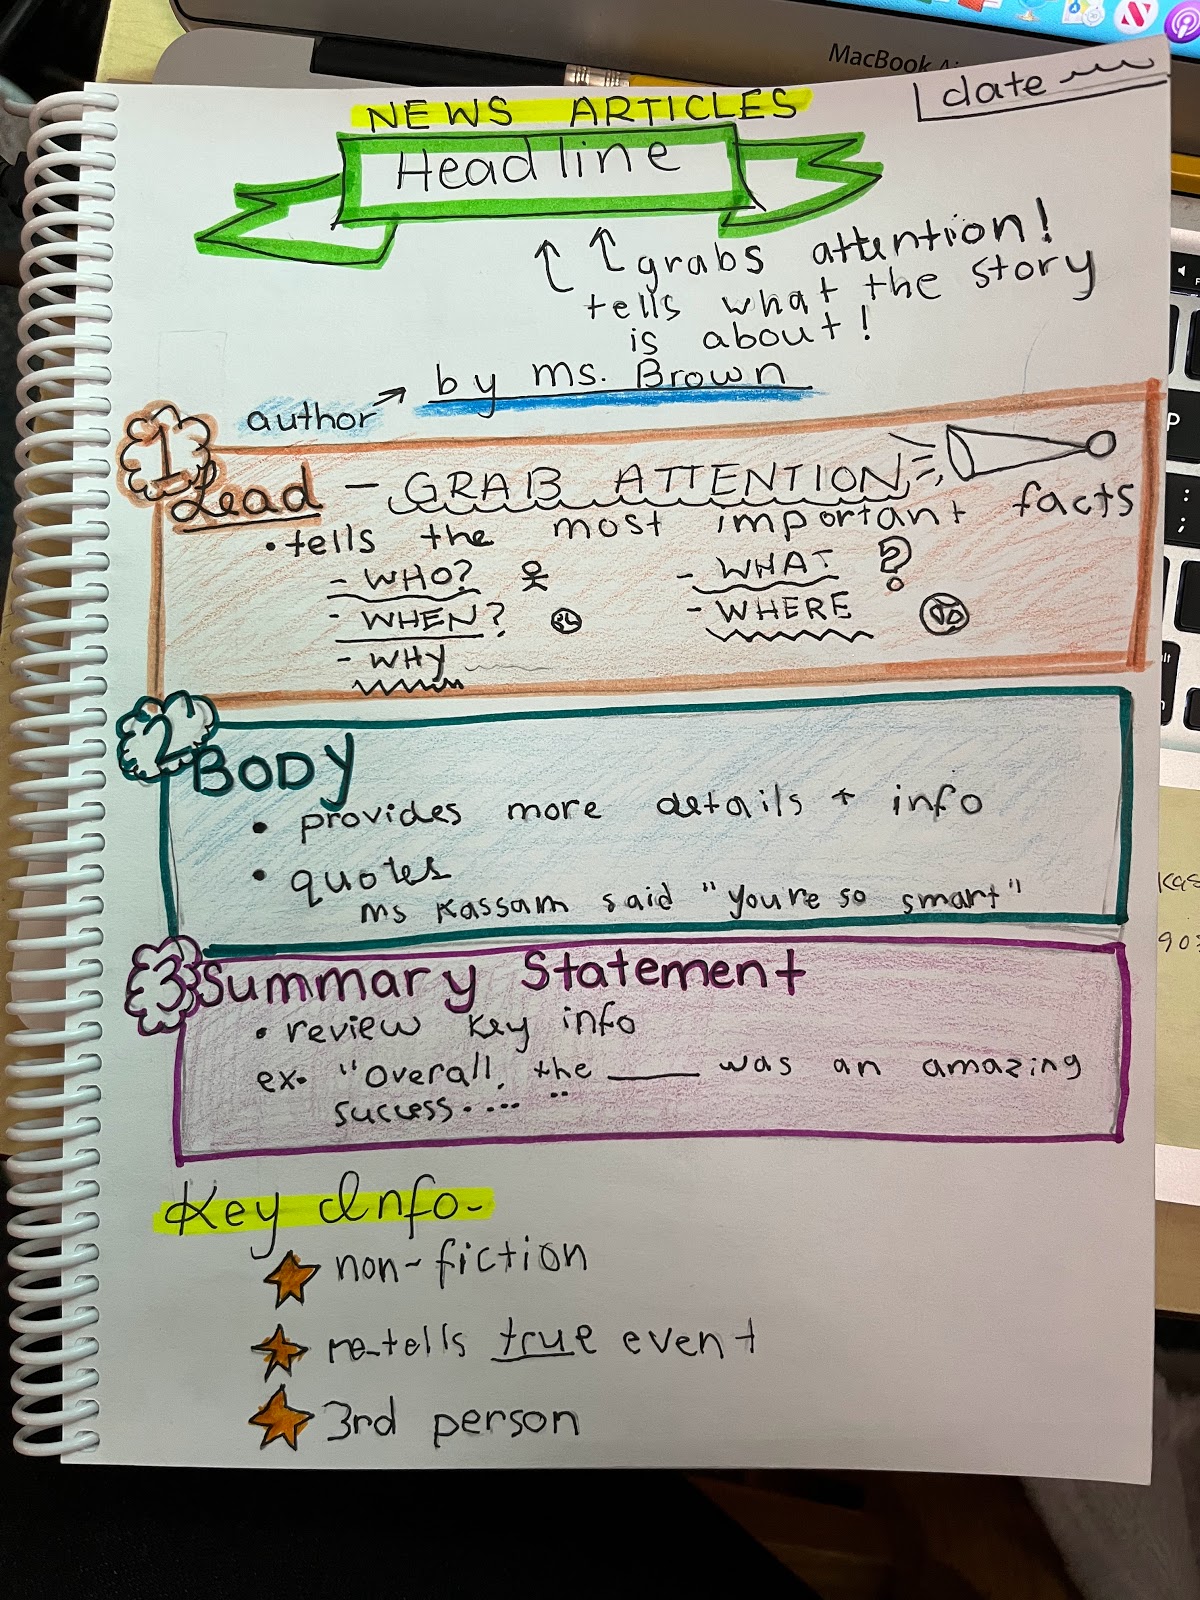 MacBook Ai
date
NEWS ARTICLES
Headline
grabs attention!
tells what the story
is about!
by ms. Brown
author
1
Lead - GRAB ATTENTION
• tells the most important facts
- WHO? - WHAT ?
- WHEN? - WHERE
- WHY
2
BODY
• provides more details + info
• quotes
ms Kassam said "you're so smart"
3
Summary Statement
• review key info
ex. "Overall, the ____ was an amazing
success....."
Key Info-
non-fiction
re-tells true event
3rd person